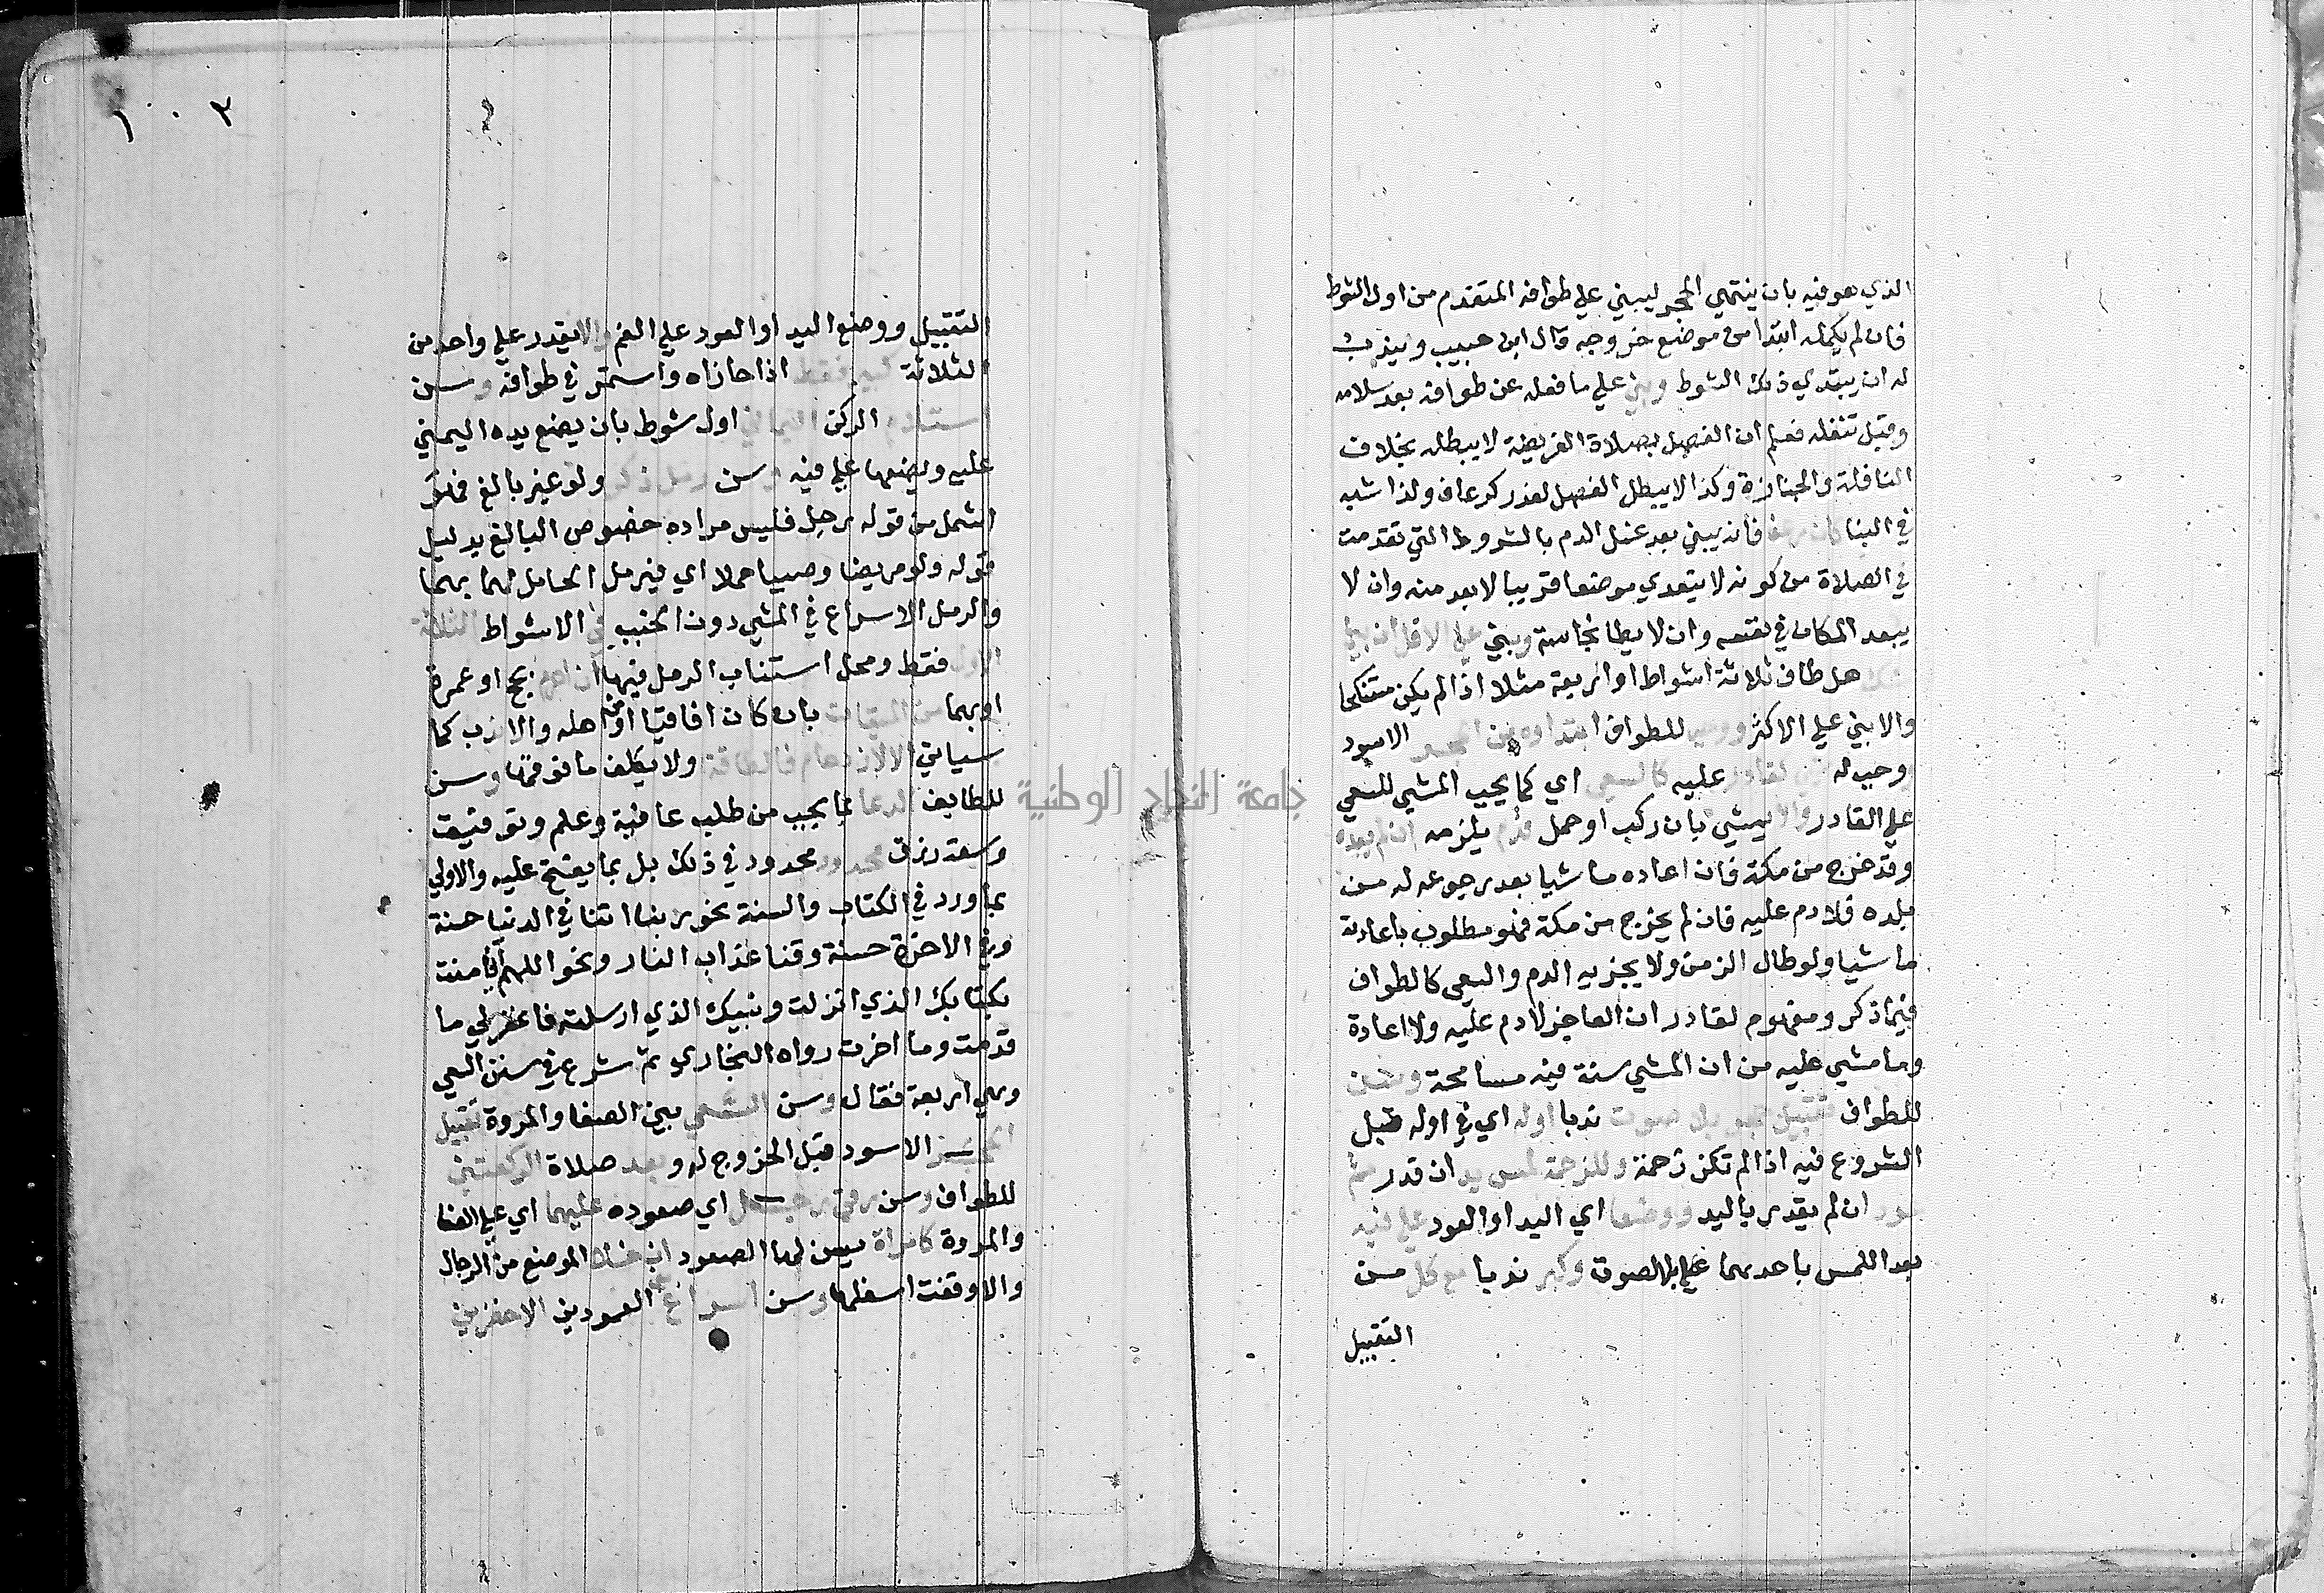 الذي هو فيه بان ينتهي للحجر ليبني علي طوافه المتقدم من اول الشوط
فان لم يكمله ابتدا من موضع خروجه قال ابن حبيب ويندب
له ان يبتدي ذلك الشوط ويبني علي ما فعله عن طوافه بعد سلامه
وقبل تنفله فعلم ان الفصل بصلاة الفريضة لا يبطله بخلاف
النافلة والجنازة وكذا لا يبطل الفصل لعذر كرعاف ولذا شبه
في البنا كان رعف فانه يبني بعد غسل الدم بالشروط التي تقدمت
في الصلاة من كونه لا يتعدي موضعا قريبا لابعد منه وان لا
يبعد المكان في نفسه وان لا يطا نجاسة ويبني علي الاقل ان
شك هل طاف ثلاثة اشواط او اربعة مثلا اذا لم يكن مستنكحا
والا بني علي الاكثر ووجب للطواف ابتداوه من الحجر الاسود
ووجب له مشي لقادر عليه كالسعي اي كما يجب المشي للسعي
علي القادر والا يمشي بان ركب او حمل فدم يلزمه ان لم يعده
وقد خرج من مكة فان اعاده ماشيا بعد رجوعه له من
بلده فلا دم عليه فان لم يخرج من مكة فهو مطلوب باعادته
ماشيا ولو طال الزمن ولا يجزيه الدم والسعي كالطواف
فيما ذكر ومفهوم لقادر ان العاجز لا دم عليه ولا اعادة
وما مشي عليه من ان المشي سنة فيه مسامحة وسن
للطواف تقبيل حجر بلا صوت ندبا اوله اي في اوله قبل
الشروع فيه اذا لم تكن زحمة وللزحمة لمس بيد ان قدر ثم
عود ان لم يقدر باليد ووضعا اي اليد او العود علي فيه
بعد اللمس باحدهما علي بلا صوت وكبر ندبا مع كل من
التقبيل
١٠٣
التقبيل ووضع اليد او العود علي الفم والا يقدر علي واحد من
الثلاثة كبر فقط اذا حاذاه واستمر في طوافه وسن
استلام الركن اليماني اول شوط بان يضع يده اليمني
عليه ويضعها علي فيه وسن رمل ذكر ولو غير بالغ فهو
اشمل من قوله رجل فليس مراده خصوص البالغ بدليل
قوله ولو مريضا وصبيا حملا اي فيرمل الحامل لهما بهما
والرمل الاسراع في المشي دون الخبب في الاشواط الثلاثة
الاول فقط ومحل استنان الرمل فيها ان احرم بحج او عمرة
او بهما من الميقات بان كان افاقيا او من اهله والا ندب كما
سياتي الا لازدحام فالطاقة ولا يكلف ما فوقها وسن
للطايف الدعا بما يحب من طلب عافية وعلم وتوفيق
وسعة رزق محدود في ذلك بل بما يفتح عليه والاولي
بما ورد في الكتاب والسنة نحو ربنا اتنا في الدنيا حسنة
وفي الاخرة حسنة وقنا عذاب النار ونحو اللهم اني امنت
بكتابك الذي انزلت ونبيك الذي ارسلت فاغفر لي ما
قدمت وما اخرت رواه البخاري ثم شرع في سنن السعي
وهي اربعة فقال وسن للسعي بين الصفا والمروة تقبيل
الحجر الاسود قبل الخروج له وبعد صلاة الركعتين
للطواف وسن رقي رجل اي صعوده عليهما اي علي الصفا
والمروة كامراة يسن لها الصعود ان خلا الموضع من الرجال
والا وقفت اسفلها وسن اسراع العمودين الاخضرين
جامعة النجاح الوطنية